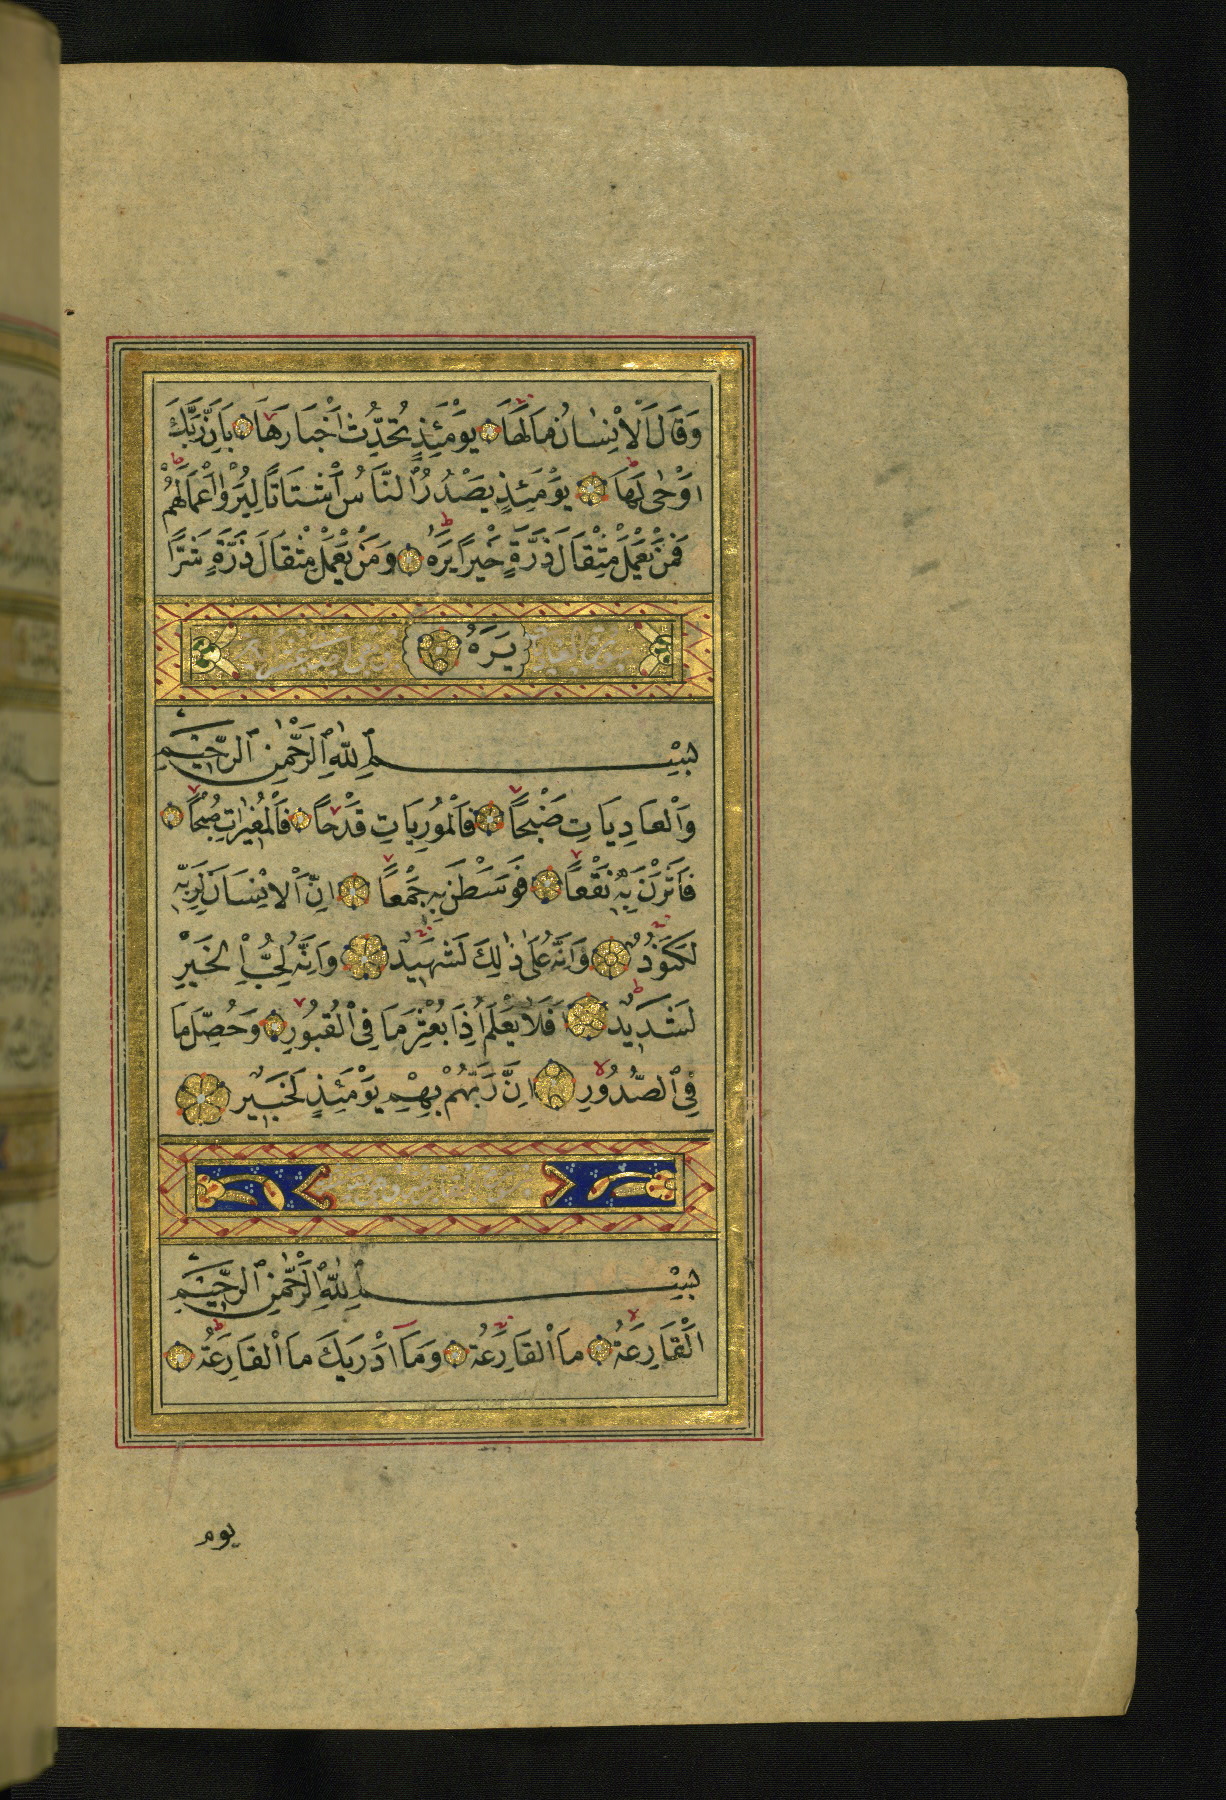 وَقَالَ الْاِنْسَانُ مَا لَهَا يَوْمَئِذٍ تُحَدِّثُ اَخْبَارَهَا بِاَنَّ رَبَّكَ
اَوْحٰى لَهَا يَوْمَئِذٍ يَصْدُرُ النَّاسُ اَشْتَاتًا لِيُرَوْا اَعْمَالَهُمْ
فَمَنْ يَعْمَلْ مِثْقَالَ ذَرَّةٍ خَيْرًا يَرَهُ وَمَنْ يَعْمَلْ مِثْقَالَ ذَرَّةٍ شَرًّا
يَرَهُ
بِسْمِ اللّٰهِ الرَّحْمٰنِ الرَّحِيْمِ
وَالْعَادِيَاتِ ضَبْحًا فَالْمُورِيَاتِ قَدْحًا فَالْمُغِيرَاتِ صُبْحًا
فَاَثَرْنَ بِهِ نَقْعًا فَوَسَطْنَ بِهِ جَمْعًا اِنَّ الْاِنْسَانَ لِرَبِّهِ
لَكَنُودٌ وَاِنَّهُ عَلٰى ذٰلِكَ لَشَهِيدٌ وَاِنَّهُ لِحُبِّ الْخَيْرِ
لَشَدِيدٌ اَفَلَا يَعْلَمُ اِذَا بُعْثِرَ مَا فِي الْقُبُورِ وَحُصِّلَ مَا
فِي الصُّدُورِ اِنَّ رَبَّهُمْ بِهِمْ يَوْمَئِذٍ لَخَبِيرٌ
بِسْمِ اللّٰهِ الرَّحْمٰنِ الرَّحِيْمِ
اَلْقَارِعَةُ مَا الْقَارِعَةُ وَمَا اَدْرٰيكَ مَا الْقَارِعَةُ
يوم